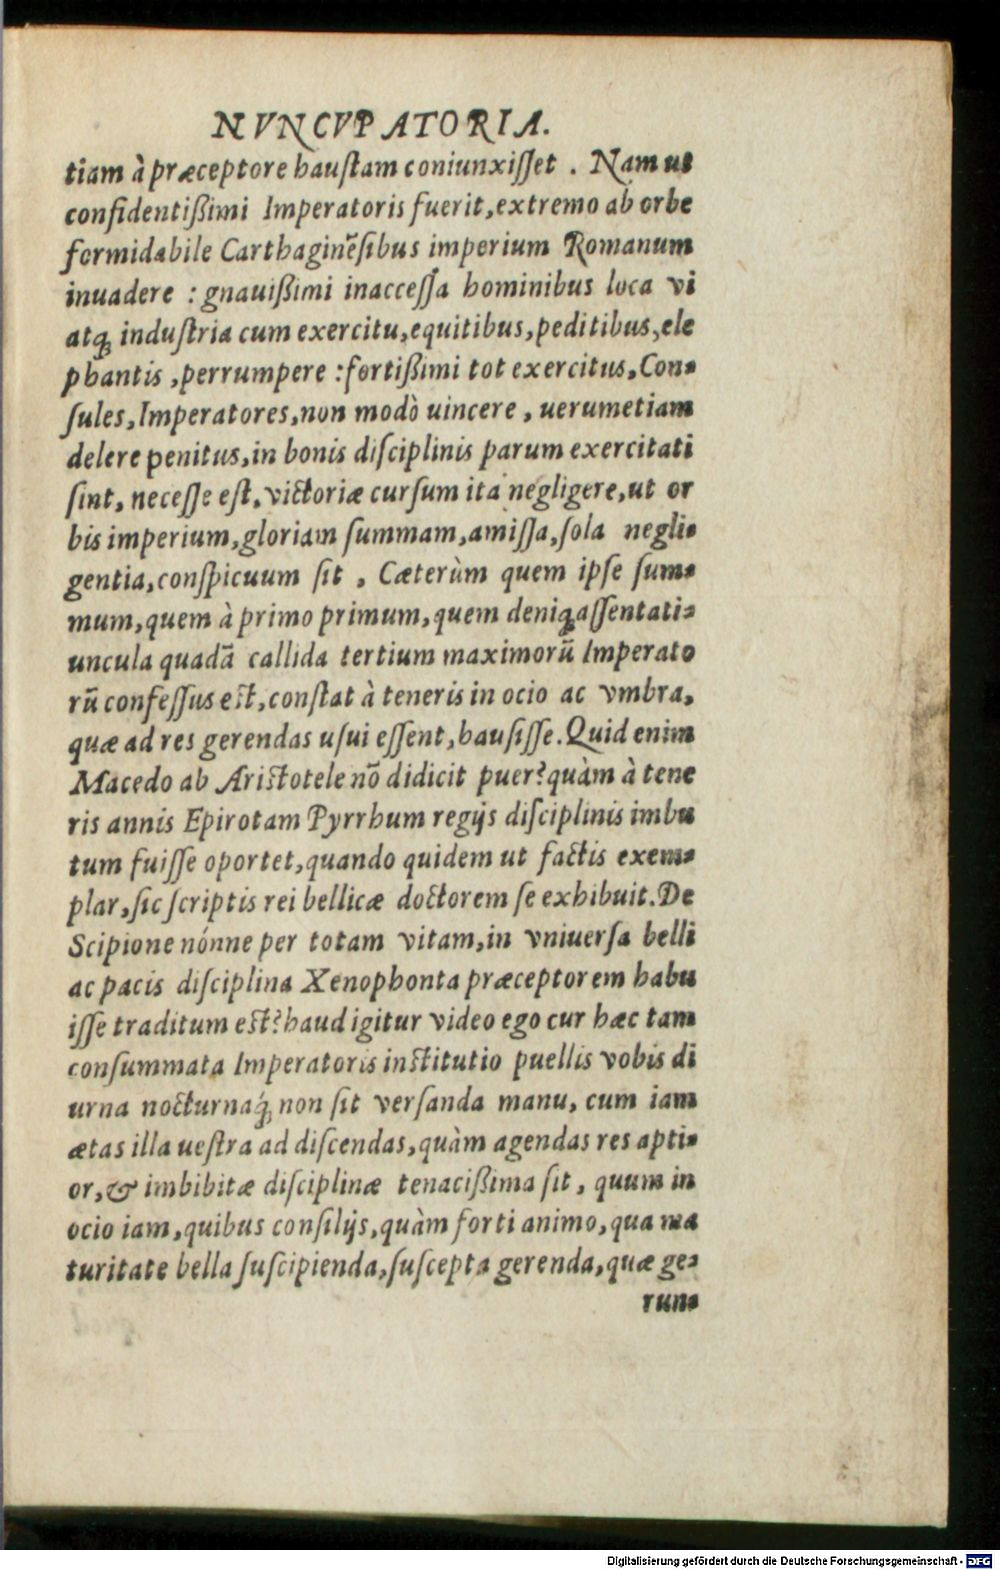 NVNCVPATORIA.
tiam à præceptore hauſtam coniunxiſſet . Nam ut
confidentißimi Imperatoris fuerit, extremo ab orbe
formidabile Carthaginẽſibus imperium Romanum
inuadere : gnauißimi inacceſſa hominibus loca vi
atq; induſtria cum exercitu, equitibus, peditibus, ele
phantis , perrumpere : fortißimi tot exercitus, Con-
ſules, Imperatores, non modò uincere , uerumetiam
delere penitus, in bonis diſciplinis parum exercitati
ſint, neceſſe eſt. victoriæ curſum ita negligere, ut or
bis imperium, gloriam ſummam, amiſſa, ſola negli-
gentia, conſpicuum ſit . Cæterùm quem ipſe ſum-
mum, quem à primo primum, quem deniq; aſſentati-
uncula quadã callida tertium maximorũ Imperato
rũ confeſſus eſt, conſtat à teneris in ocio ac vmbra,
quæ ad res gerendas uſui eſſent, hauſiſſe. Quid enim
Macedo ab Ariſtotele nõ didicit puer? quàm à tene
ris annis Epirotam Pyrrhum regijs diſciplinis imbu
tum fuiſſe oportet, quando quidem ut factis exem-
plar, ſic ſcriptis rei bellicæ doctorem ſe exhibuit. De
Scipione nónne per totam vitam, in vniuerſa belli
ac pacis diſciplina Xenophonta præceptorem habu
iſſe traditum eſt? haud igitur video ego cur hæc tam
conſummata Imperatoris inſtitutio puellis vobis di
urna nocturnaq́; non ſit verſanda manu, cum iam
ætas illa ueſtra ad diſcendas, quàm agendas res apti-
or, & imbibitæ diſciplinæ tenacißima ſit , quum in
ocio iam, quibus conſilijs, quàm forti animo, qua ma
turitate bella ſuſcipienda, ſuſcepta gerenda, quæ ge-
run-
Digitalisierung gefördert durch die Deutsche Forschungsgemeinschaft - DFG